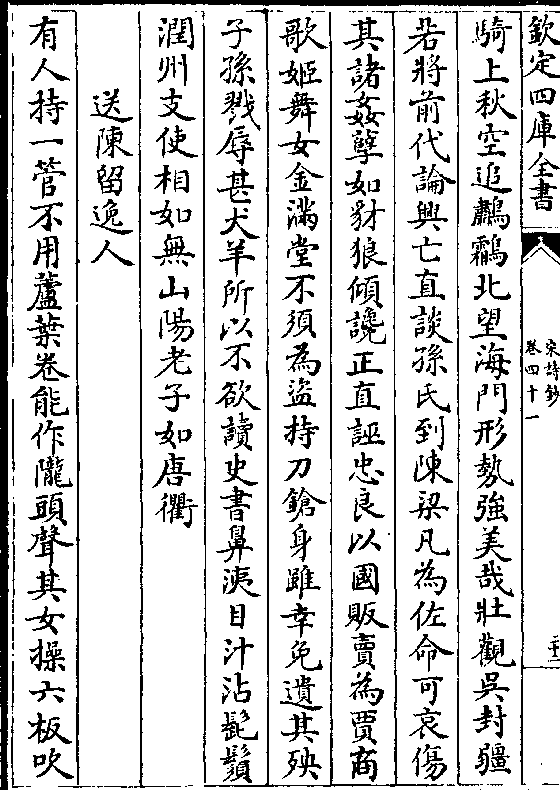 欽定四庫全書
宋詩鈔
卷四十一
騎上秋空追鸘鸘北望海門形勢強美哉壯觀吳封疆
若將前代論興亡直談孫氏到陳梁凡為佐命可哀傷
其諸姦孽如豺狼傾讒正直誣忠良以國販賣為賈商
歌姬舞女金滿堂不須為盜持刀鎗身雖幸免遺其殃
子孫戮辱甚犬羊所以不欲讀史書鼻洟目汁沾髭鬚
潤州支使相如無山陽老子如唐衢
送陳留逸人
有人持一管不用蘆葉卷能作隴頭聲其女操六板吹